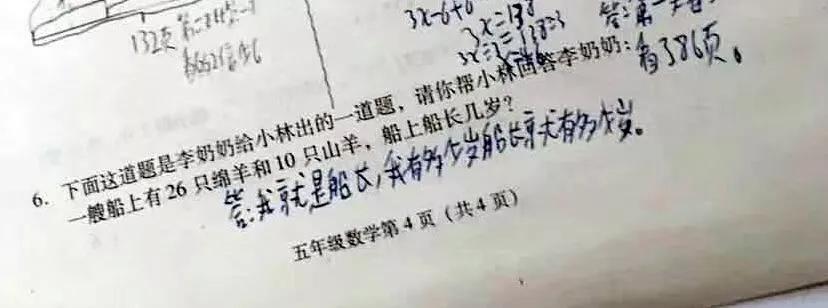 132页
3x-6+6
3x=138
3x÷3=138÷3
有386页。
6. 下面这道题是李奶奶给小林出的一道题，请你帮小林回答李奶奶：
一艘船上有 26 只绵羊和 10 只山羊，船上船长几岁？
答:我就是船长,我有多少岁船长就有多少岁。
五年级数学第 4 页（共 4 页）